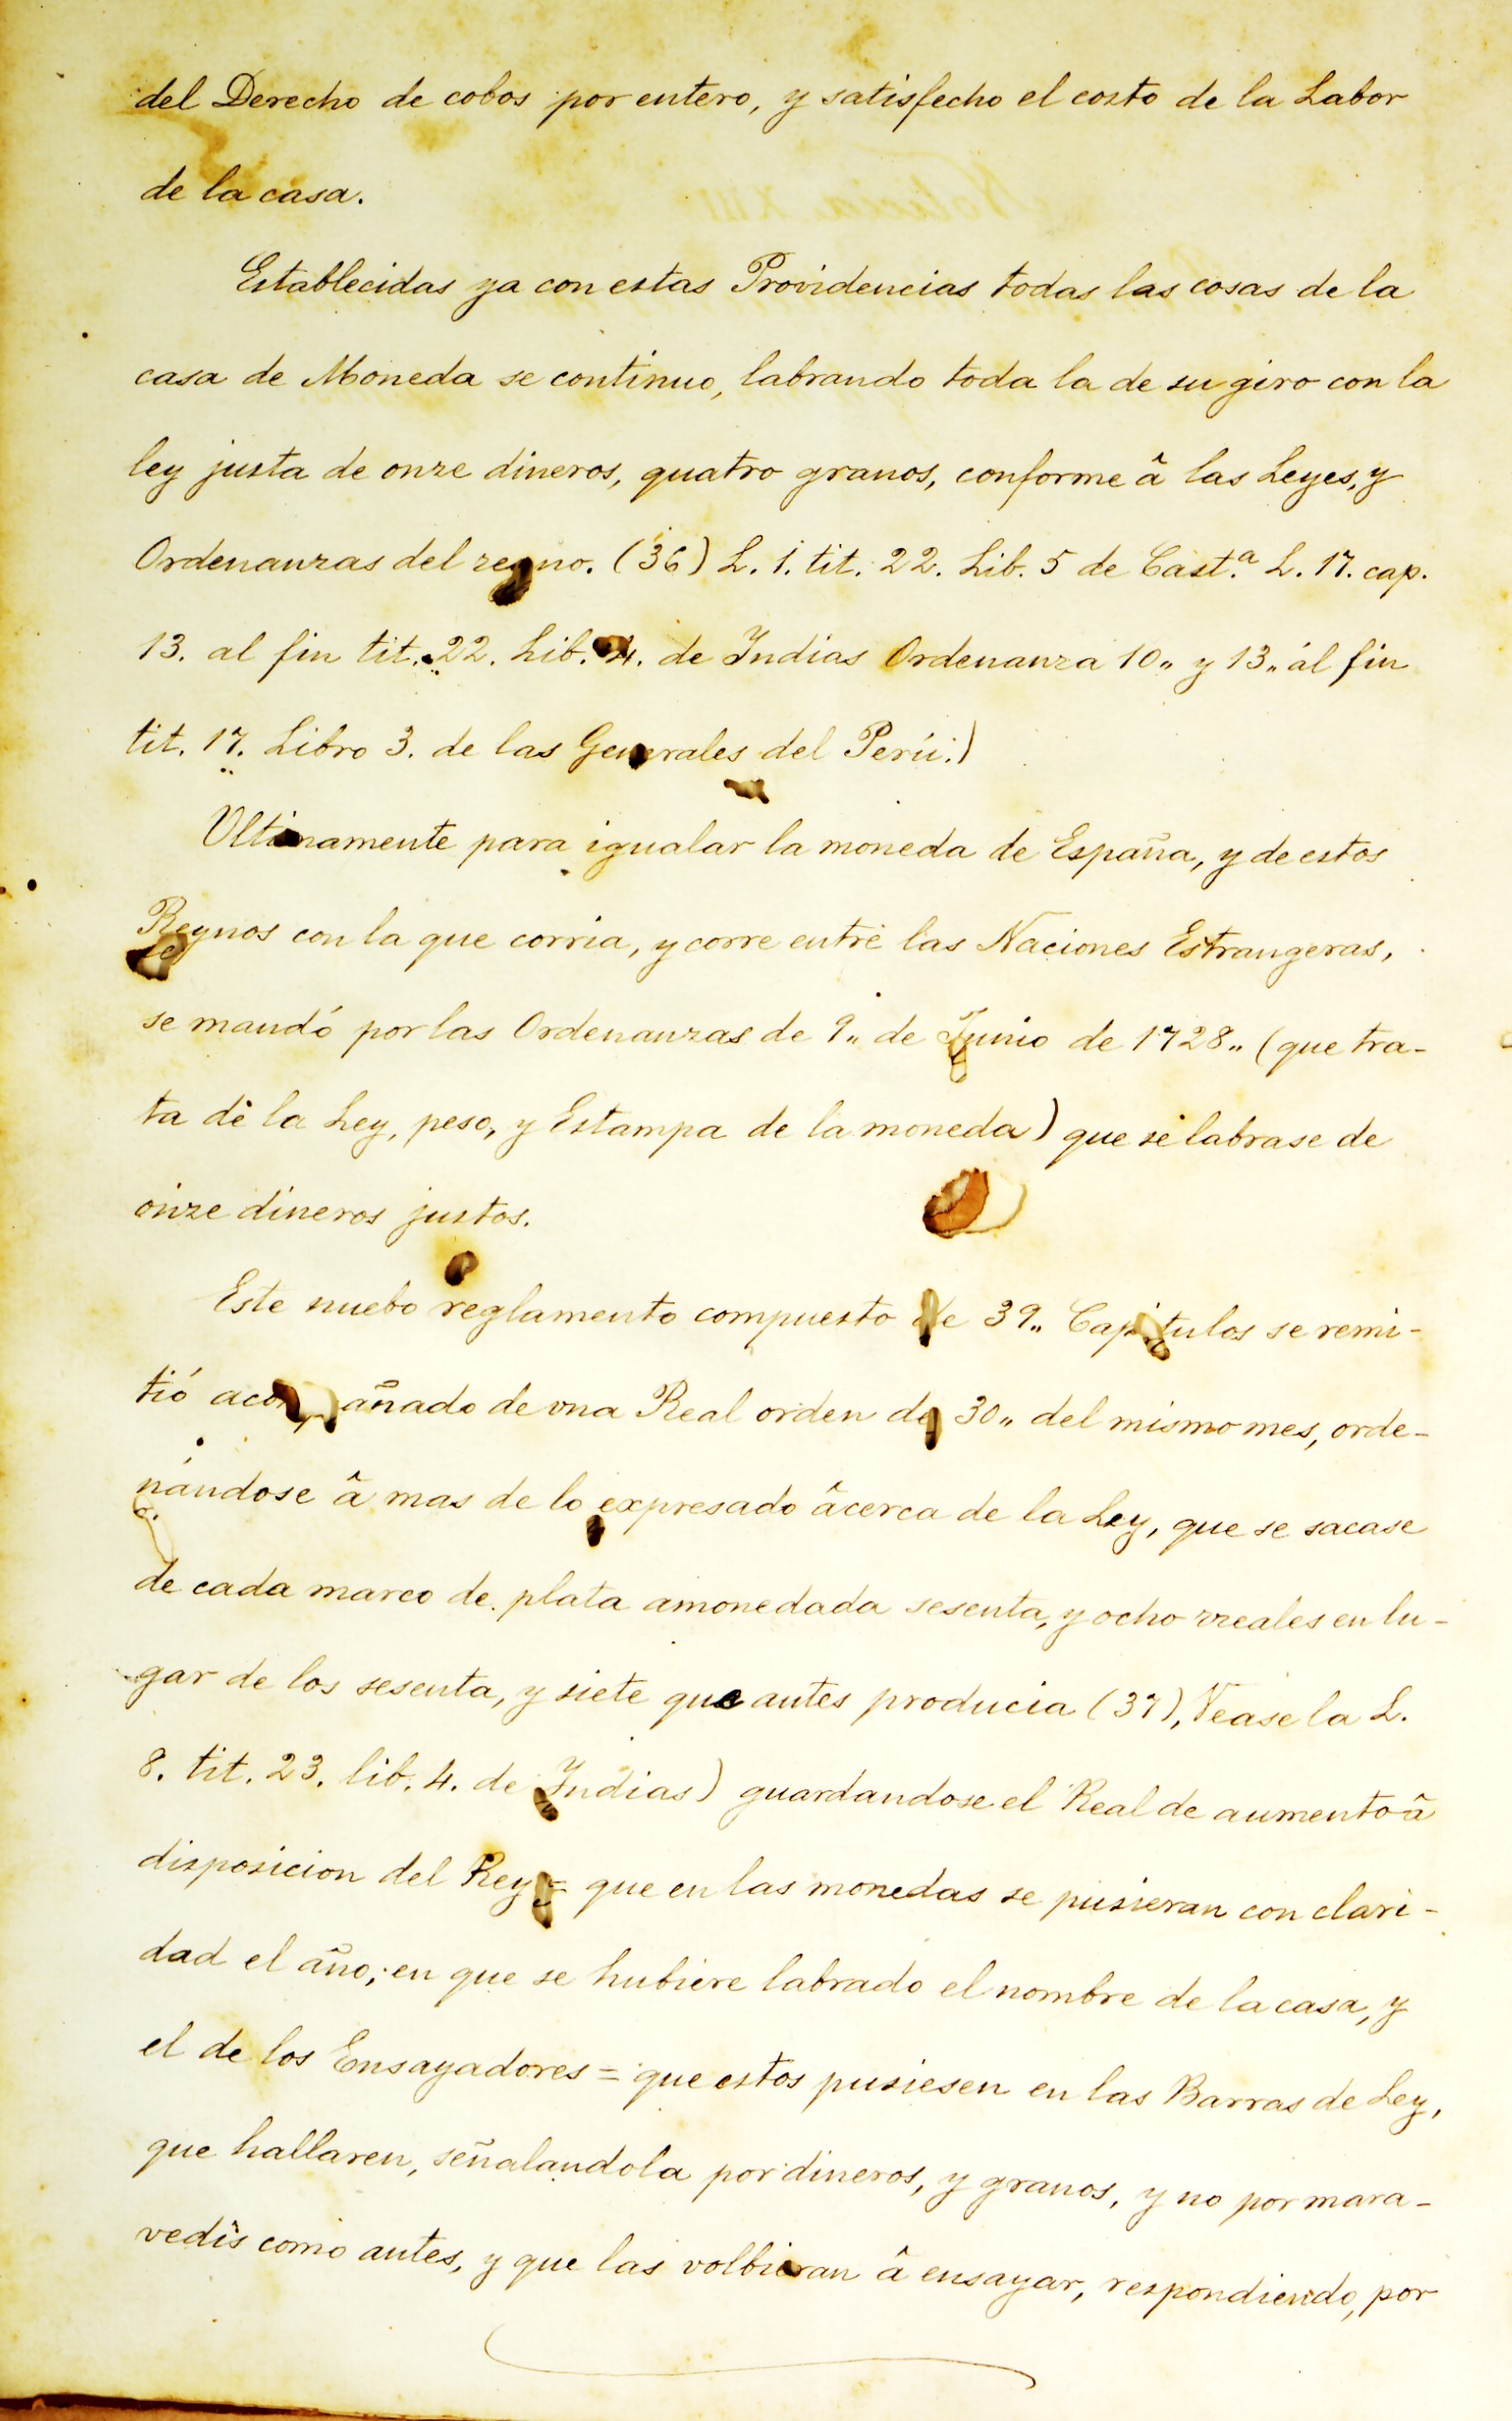 del Derecho de cobos por entero, y satisfecho el costo de la Labor
de la casa.
Establecidas ya con estas Providencias todas las cosas de la
casa de Moneda se continuo, labrando toda la de su giro con la
ley justa de onze dineros, quatro granos, conforme â las Leyes, y
Ordenanzas del regno. (36) L. 1. tit. 22. Lib. 5 de Cast.ª L. 17. cap.
13. al fin tit. 22. Lib. 4. de Indias Ordenanza 10„ y 13„ ál fin
tit. 17. Libro 3. de las Generales del Perú.)
Ultimamente para igualar la moneda de España, y de estos
Reynos con la que corria, y corre entre las Naciones Estrangeras,
se mandó por las Ordenanzas de 9„ de Junio de 1728„ (que tra-
ta de la Ley, peso, y Estampa de la moneda) que se labrase de
onze dineros justos.
Este nuebo reglamento compuesto de 39„ Capitulos se remi-
tió acompañado de vna Real orden de 30„ del mismo mes, orde-
nándose â mas de lo expresado âcerca de la Ley, que se sacase
de cada marco de plata amonedada sesenta, y ocho rreales en lu-
gar de los sesenta, y siete que antes producia (37), Vease la L.
8. tit. 23. lib. 4. de Indias) guardandose el Real de aumento â
disposicion del Rey = que en las monedas se pusieran con clari-
dad el año, en que se hubiere labrado el nombre de la casa, y
el de los Ensayadores = que estos pusiesen en las Barras de Ley,
que hallaren, señalandola por dineros, y granos, y no por mara-
vedis como antes, y que las volbieran â ensayar, respondiendo, por